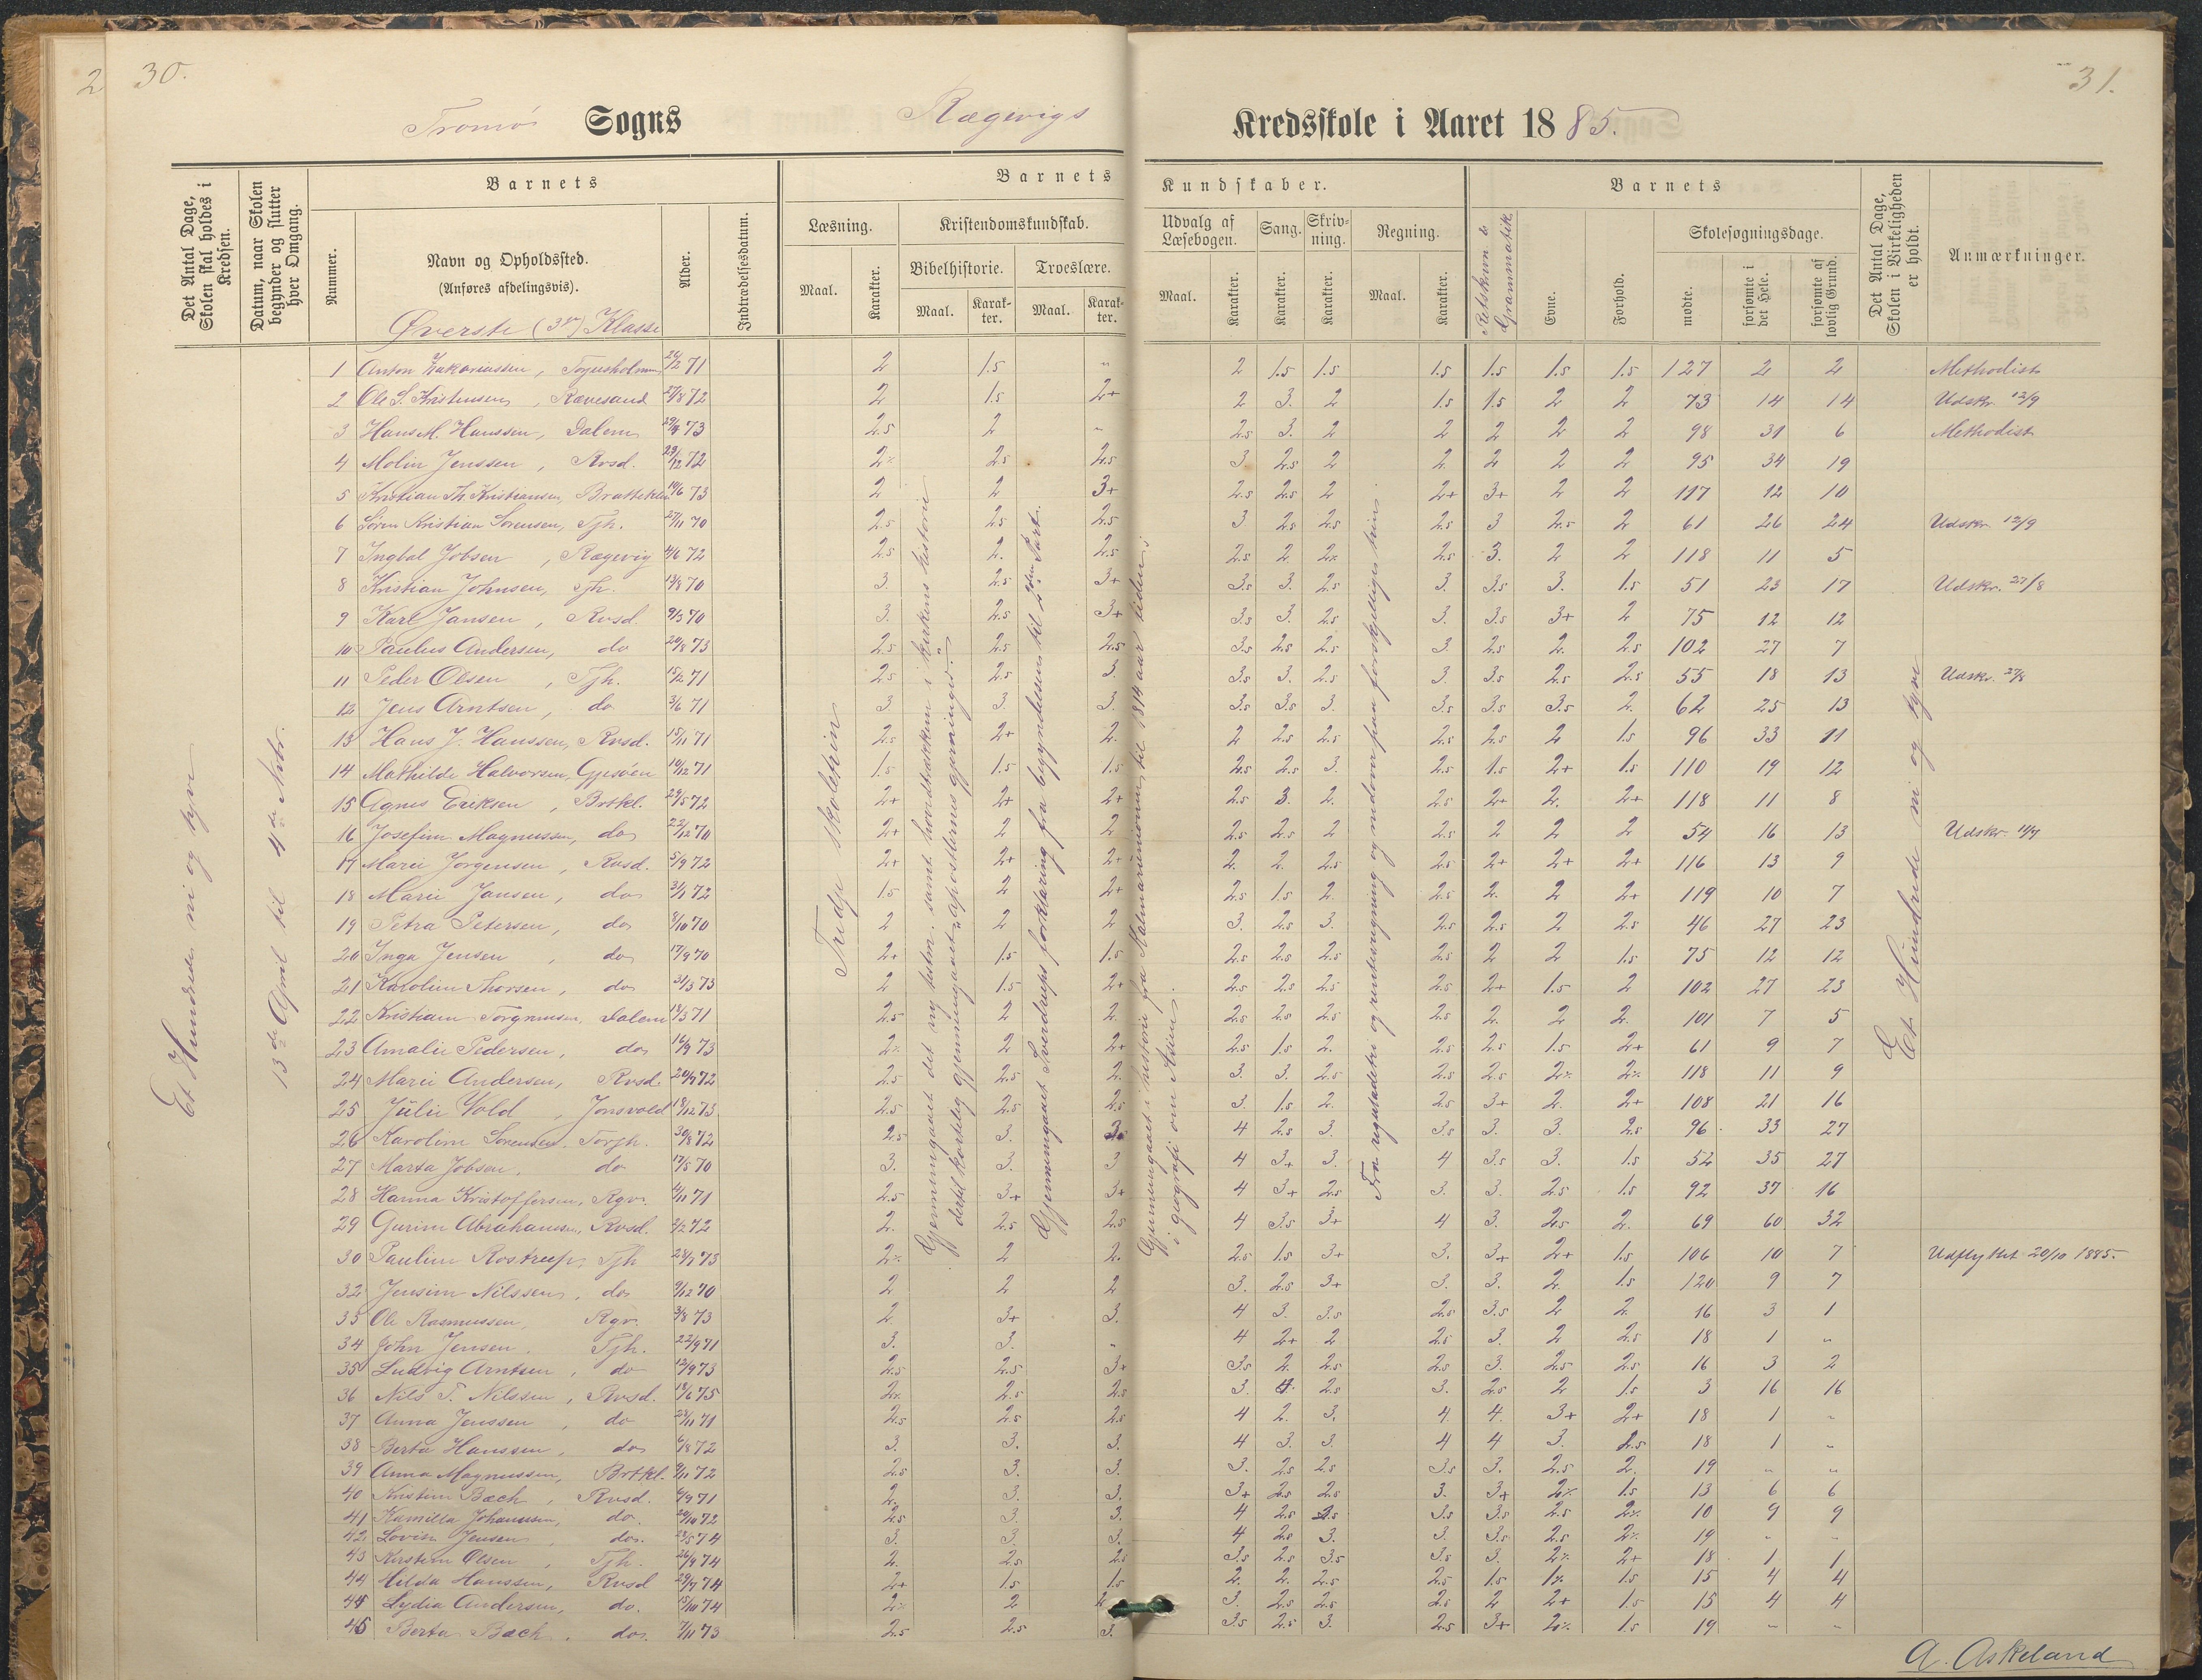 2 30. 31.
Tromø Sogns Rægevigs Kredsskole i Aaret 1885.
Det Antal Dage, Skolen skal holdes i Kredsen.
Datum, naar Skolen begynder og slutter hver Omgang.
Barnets
Nummer.
Navn og Opholdssted.
(Anføres afdelingsvis).
Øverste (3die) Klasse
Alder.
Indtrædelsesdatum.
Barnets Kundskaber.
Læsning.
Maal. Karakter.
Kristendomskundskab.
Bibelhistorie. Troeslære.
Maal. Karakter. Maal. Karakter.
Udvalg af Læsebogen.
Maal. Karakter.
Sang. Karakter.
Skrivning. Karakter.
Regning.
Maal. Karakter.
Barnets
Retskrivn. & Grammatik
Evne.
Forhold.
Skolesøgningsdage.
mødte.
forsømte i det Hele.
forsømte af lovlig Grund.
Det Antal Dage, Skolen i Virkeligheden er holdt.
Anmærkninger.
Et Hundrede ni og tyve
13de April til 4de Novbr.
Tredje skoletrin
Et Hundrede ni og tyve
1 Anton Zakariassen, Torjusholmen 24/2 71 2 1.5 " 2 1.5 1.5 1.5 1.5 1.5 1.5 127 2 2 Methodist
2 Ole S. Kristensen, Rævesand 27/8 72 2 1.5 2+ 2 3. 2 1.5 1.5 2 2 73 14 14 Udskr. 12/9
3 Hans M. Hanssen, Dalem 73 2.5 2 " 2.5 3. 2 2 2 2 2 98 31 6 Methodist
4 Molin Jenssen, Rvsd. 72 2% 2.5 2.5 3 2.5 2 2 2 2 2 95 34 19
5 Kristian Th. Kristiansen, Bratteklev 19/6 73 2 2 3+ 2.5 2.5 2 2+ 3+ 2 2 117 12 10
6 Søren Kristian Sørensen, Tjh. 27/11 70 2.5 2.5 2.5 3 2.5 2.5 2.5 3 2.5 2 61 26 24 Udskr. 12/9
7 Ingbal Jobsen, Rægevig 4/6 72 2.5 2. 2.5 2.5 2 2% 2.5 3. 2 2 118 11 5
8 Kristian Johnsen, Tjh. 13/8 70 3. 2.5 3+ 3.5 3. 2.5 3. 3.5 3. 1.5 51 23 17 Udskr. 27/8
9 Karl Jansen, Rvsd. 9/3 70 3. 2.5 3+ 3.5 3. 2.5 3. 3.5 3+ 2 75 12 12
10 Paulus Andersen, do 24/8 73 2.5 2.5 2.5 3.5 2.5 2.5 3. 2.5 2. 2.5 102 27 7
11 Peder Olsen, Tjh. 15/2 71 2.5 2.5 3. 3.5 3. 2.5 3. 3.5 2.5 2.5 55 18 13 Udskr. 27/8
12 Jens Arntsen, do 3/6 71 3 3. 3. 3.5 3.5 3. 3.5 3.5 3.5 2. 62 25 13
13 Hans J. Hanssen, Rvsd. 15/11 71 2.5 2+ 2. 2 2.5 2.5 2.5 2.5 2 1.5 96 33 11
14 Mathilde Halvorsen, Gjesøen 14/12 71 1.5 1.5 1.5 2.5 2.5 3. 2.5 1.5 2+ 1.5 110 19 12
15 Agnes Eriksen, Brtkl. 29/5 72 2+ 2+ 2+ 2.5 3. 2. 2.5 2+ 2. 2+ 118 11 8
16 Josefine Magnussen, do 22/12 70 2+ 2 2 2.5 2.5 2 2.5 2 2 2 54 16 13 Udskr.
17 Marie Jørgensen, Rvsd. 5/9 72 2+ 2+ 2+ 2. 2. 2.5 2.5 2+ 2+ 2+ 116 13 9
18 Marie Jansen, do 31/1 72 1.5 2 2+ 2.5 1.5 2. 2.5 2. 2 2+ 119 10 7
19 Petra Petersen, do 8/10 70 2 2 2 3. 2.5 3. 2.5 2.5 2 2.5 46 27 23
20 Inga Jensen, do 17/9 70 2+ 1.5 1.5 2.5 2.5 2.5 2.5 2 2 1.5 75 12 12
21 Karoline Thorsen, do 31/3 73 2 1.5 2+ 2.5 2.5 2.5 2.5 2+ 1.5 2 102 27 23
22 Kristiane Torgnusen, Dalem 18/3 71 2.5 2 2. 2.5 2.5 2.5 2.5 2. 2 2. 101 7 5
23 Amalie Pedersen, do 16/9 73 2% 2 2+ 2.5 1.5 2. 2.5 2.5 1.5 2+ 61 9 7
24 Marie Andersen, Rvsd. 20/9 72 2.5 2.5 2. 3. 3. 2.5 2.5 2.5 2% 2% 118 11 9
25 Julie Vold, Jonsvold 18/12 73 2.5 2.5 2.5 3. 1.5 2. 2.5 3+ 2. 2+ 108 21 16
26 Karoline Sørensen, Torjh. 30/8 72 2.5 3. 3. 4 2.5 3. 3.5 3. 3. 2.5 96 33 27
27 Marta Jobsen, do 17/5 70 3. 3. 3 4 3+ 3. 4 3.5 3. 1.5 52 35 27
28 Hanna Kristoffersen, Rgv. 4/11 71 2.5 3+ 3+ 4 3+ 2.5 3. 3. 2.5 1.5 92 37 16
29 Gurine Abrahamsen, Rvsd. 2/2 72 2. 2.5 2.5 4 3.5 3+ 4 3. 2.5 2. 69 60 32
30 Pauline Rostrup, Tjh 23/7 73 2% 2 2. 2.5 1.5 3+ 3. 3+ 2+ 1.5 106 10 7 Udflyttet 20/10 1885.
32 Jensine Nilssen, do 9/12 70 2 2 2 3. 2.5 3+ 3. 3. 2 1.5 120 9 7
33 Ole Rasmussen, Rgv. 3/8 73 2. 3+ 3. 4 3. 3.5 2.5 3.5 2 2. 16 3 1
34 John Jensen, Tjh. 22/9 71 3. 3. " 4 2+ 2 2.5 3. 2 2.5 18 1 "
35 Ludvig Arntsen, do 12/9 73 2.5 2.5 3+ 3.5 2. 2.5 2.5 3. 2.5 2.5 16 3 2
36 Nils T. Nilssen, Rvsd. 18/6 75 2% 2.5 2.5 3. 4. 2.5 3. 2.5 2 1.5 3 16 16
37 Anna Jenssen, do 23/11 71 2.5 2.5 2.5 4 2. 3. 4. 4. 3+ 2+ 18 1 "
38 Berta Hanssen, do 6/8 72 3. 3. 3. 4 3. 3. 4 4 3. 2.5 18 1 "
39 Anna Magnussen, Brtkl. 9/11 72 2.5 3. 3. 3. 2.5 2.5 3.5 3. 2.5 2. 19 " "
40 Kristine Bach, Rvsd. 6/9 71 2. 3. 3. 3+ 2.5 2.5 3. 3+ 2% 1.5 13 6 6
41 Kamilla Johannsen, do. 20/10 72 2.5 3. 3. 4 2.5 2.5 3.5 3.5 2.5 2% 10 9 9
42 Lovise Jensen, do. 23/5 74 3. 3. 3. 4 2.5 3. 3. 3.5 2.5 2% 19 " "
43 Kirstine Olsen, Tjh. 26/9 74 2. 2.5 2.5 3.5 2.5 3.5 3.5 3. 2% 2+ 18 1 1
44 Hilda Hanssen, Rvsd 29/7 74 2+ 1.5 1.5 2. 2. 2.5 2.5 1.5 1% 1.5 15 4 4
44 Lydia Andersen, do. 15/10 74 2% 2 2 3. 2.5 2.5 2.5 2 2+ 1.5 15 4 4
45 Berta Bach, do. 7/11 73 2.5 2.5 3. 3.5 2.5 3. 2.5 3+ 2% 1.5 19 " "
Gjennemgaaet det ny testm. samt hovedtrækkene i kirkens historie
dertil kortelig gjennemgaaet "apostlernes gjerninger."
Gjennemgaaet Sverdrups forklaring fra begyndelsen til 2den Part.
Gjennemgaaet i historie fra Kalmarunionen til 1814 aar tiden;
i geografi om Asien.
Fra reguladetri og rentesregning og nedover paa forskjellige trin.
A. Askeland